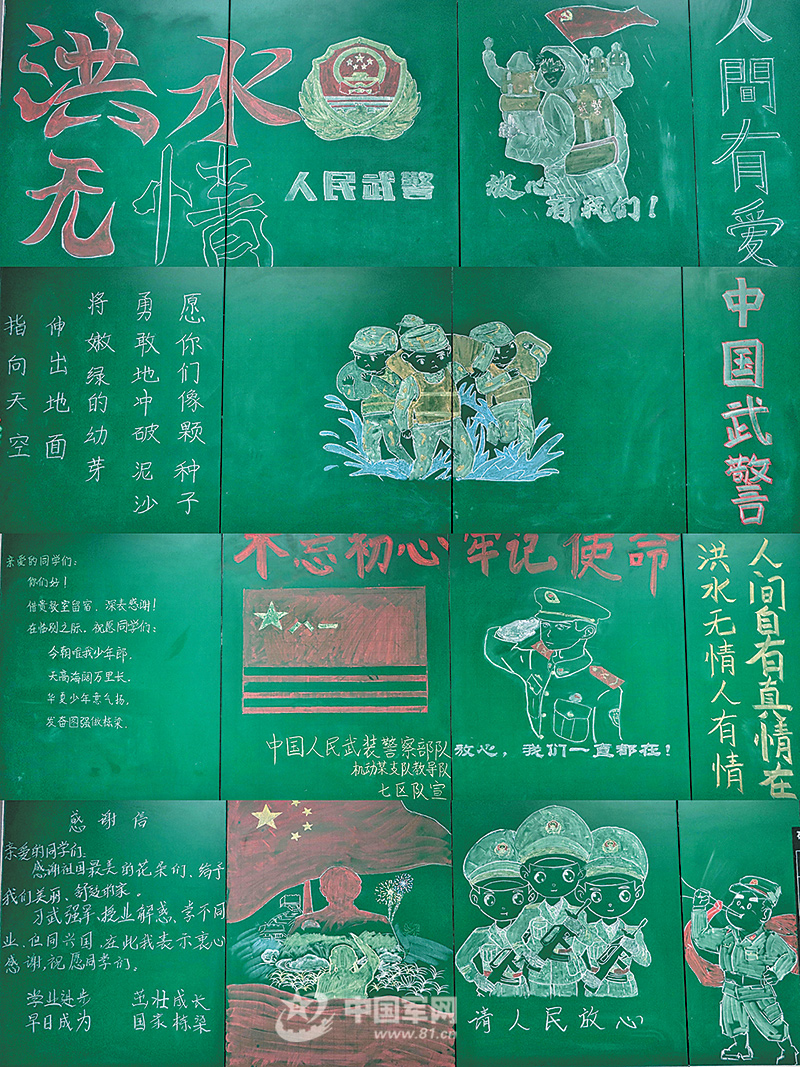 洪水
无情
人民武警
放心
有我们！
人間有爱
愿你们像颗种子
勇敢地冲破泥沙
将嫩绿的幼芽
伸出地面
指向天空
中国武警
亲爱的同学们：
你们好！
借贵教室留宿，深表感谢！
在临别之际，祝愿同学们：
今朝唯我少年郎，
天高海阔万里长，
华夏少年意气扬，
发奋图强做栋梁。
不忘初心 牢记使命
八一
中国人民武装警察部队
机动某支队教导队
七区队宣
放心，我们一直都在！
人间自有真情在
洪水无情人有情
感谢信
亲爱的同学们：
感谢祖国最美的花朵们，给予
我们美丽、舒适的家。
习武强军，授业解惑，李不同
业，但同兴国，在此我表示衷心
感谢，祝愿同学们。
学业进步 茁壮成长
早日成为 国家栋梁
请人民放心
中国军网
www.81.cn